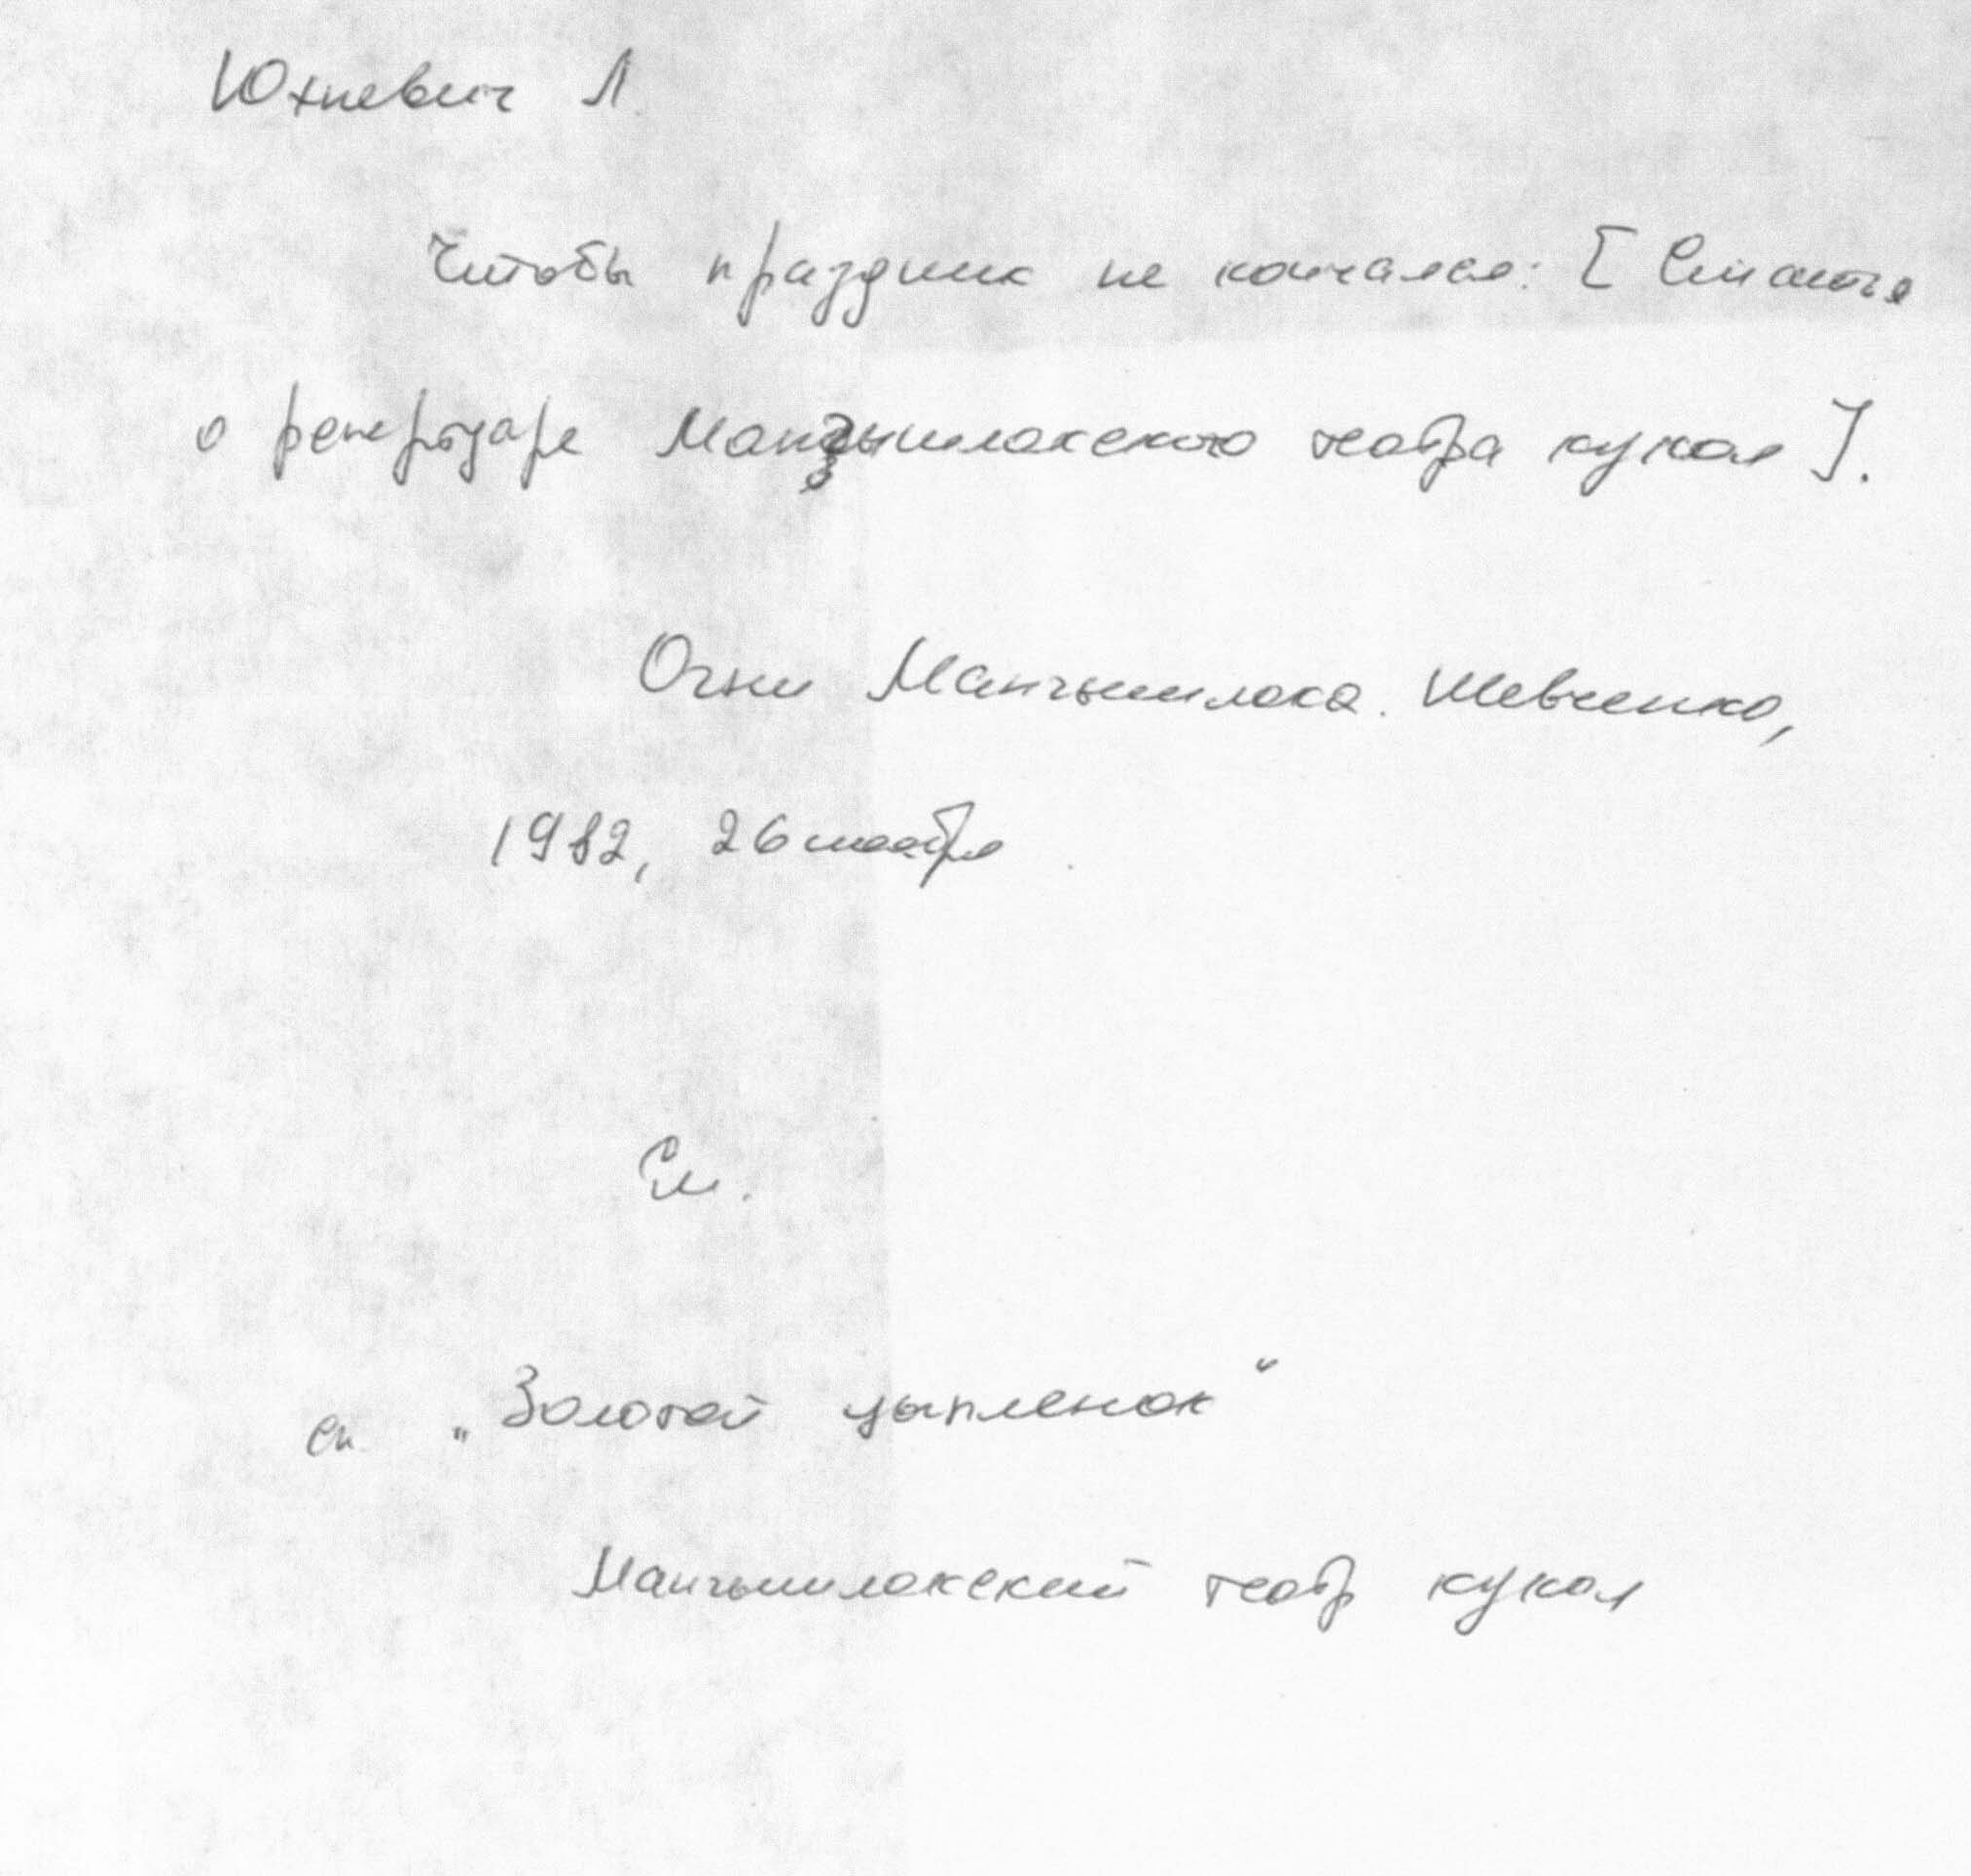 Юхневич Л.
Чтобы праздник не кончался: [Статья
о репертуаре Мангышлакского театра кукол].
Огни Мангышлака. Шевченко,
1982, 26 ноября
См.
сп. „Золотой цыпленок“
Мангышлакский театр кукол